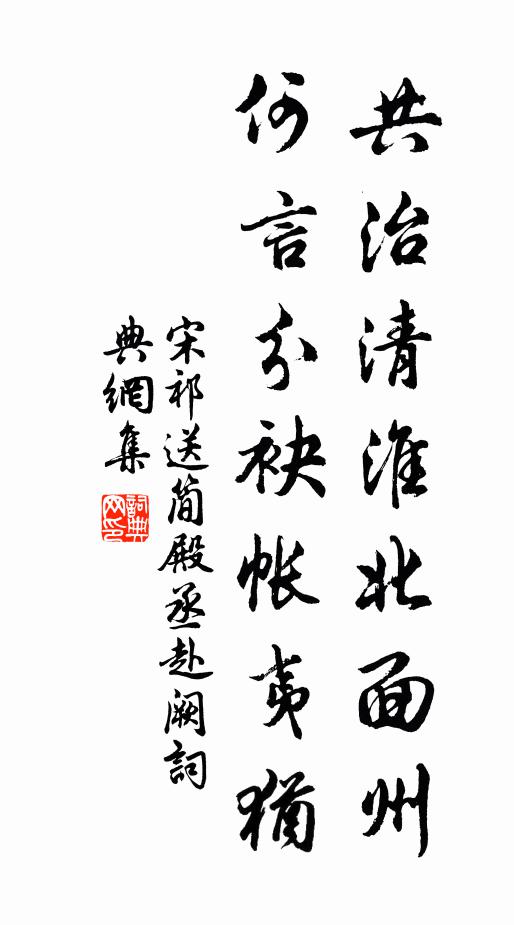 共治清淮北面州
何言分袂帳夷猶
宋祁送簡殿丞赴闕詞
典網集
詞典網印